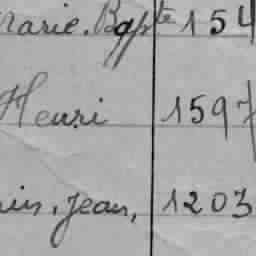 Marie. Bapte 154
Henri 1597
in, Jean, 1203